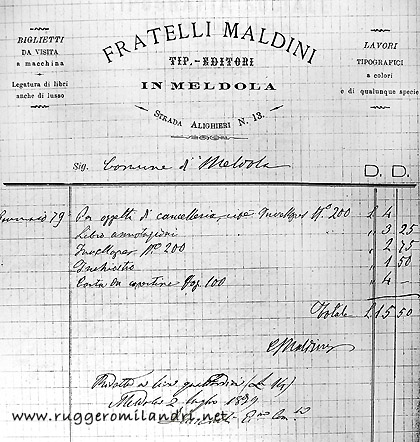 BIGLIETTI
DA VISITA
a macchina
Legatura di libri
anche di lusso
FRATELLI MALDINI
TIP.-EDITORI
IN MELDOLA
STRADA ALIGHIERI N. 13.
LAVORI
TIPOGRAFICI
a colori
e di qualunque specie
Sig. Comune di Meldola
D. D.
Gennaio 79 Per oggetti di cancelleria, cioè Invellopes N.° 200 £ 4
Libro annotazioni " 3 25
Invellopes N.° 200 " 2 75
Inchiostro " 1 50
Carta da copertine Fog. 100 " 4 —
Totale £ 15 50
Maldini
Ridotto a lire quattordici (L. 14)
Meldola 2 luglio 1894
www.ruggeromilandri.net